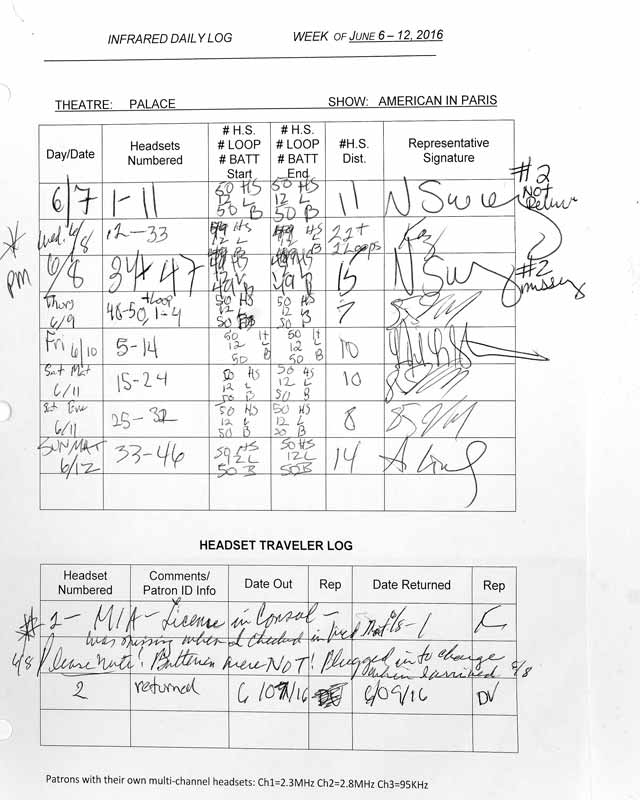 INFRARED DAILY LOG WEEK OF JUNE 6 – 12, 2016
THEATRE: PALACE SHOW: AMERICAN IN PARIS
Day/Date Headsets Numbered # H.S. # LOOP # BATT Start # H.S. # LOOP # BATT End #H.S. Dist. Representative Signature
6/7 1-11 50 HS 12 L 50 B 50 HS 12 L 50 B 11 #2 Not Return
Wed. 6/8 12-33 49 HS 12 L 49 HS 12 L 22+ 2 Loops
PM 6/8 34+47 49 B 49 B 15 #2 missing
Thurs 6/9 48-50, 1-4 + Loop 50 HS 12 L 50 B 50 HS 12 L 50 B 7
Fri 6/10 5-14 50 H 12 L 50 B 50 H 12 L 50 B 10
Sat Mat 6/11 15-24 50 HS 12 L 50 B 50 HS 12 L 50 B 10
Sat Eve 6/11 25-32 50 HS 12 L 50 B 50 HS 12 L 50 B 8
SUN MAT 6/12 33-46 50 HS 12 L 50 B 50 HS 12 L 50 B 14
HEADSET TRAVELER LOG
Headset Numbered Comments/ Patron ID Info Date Out Rep Date Returned Rep
MIA - License in Consol -
was missing when I checked in Wed Mat 6/8
6/8 Please note! Batteries were NOT! Plugged in to charge when I arrived 6/8
2 returned 6/09/16 DV
Patrons with their own multi-channel headsets: Ch1=2.3MHz Ch2=2.8MHz Ch3=95KHz